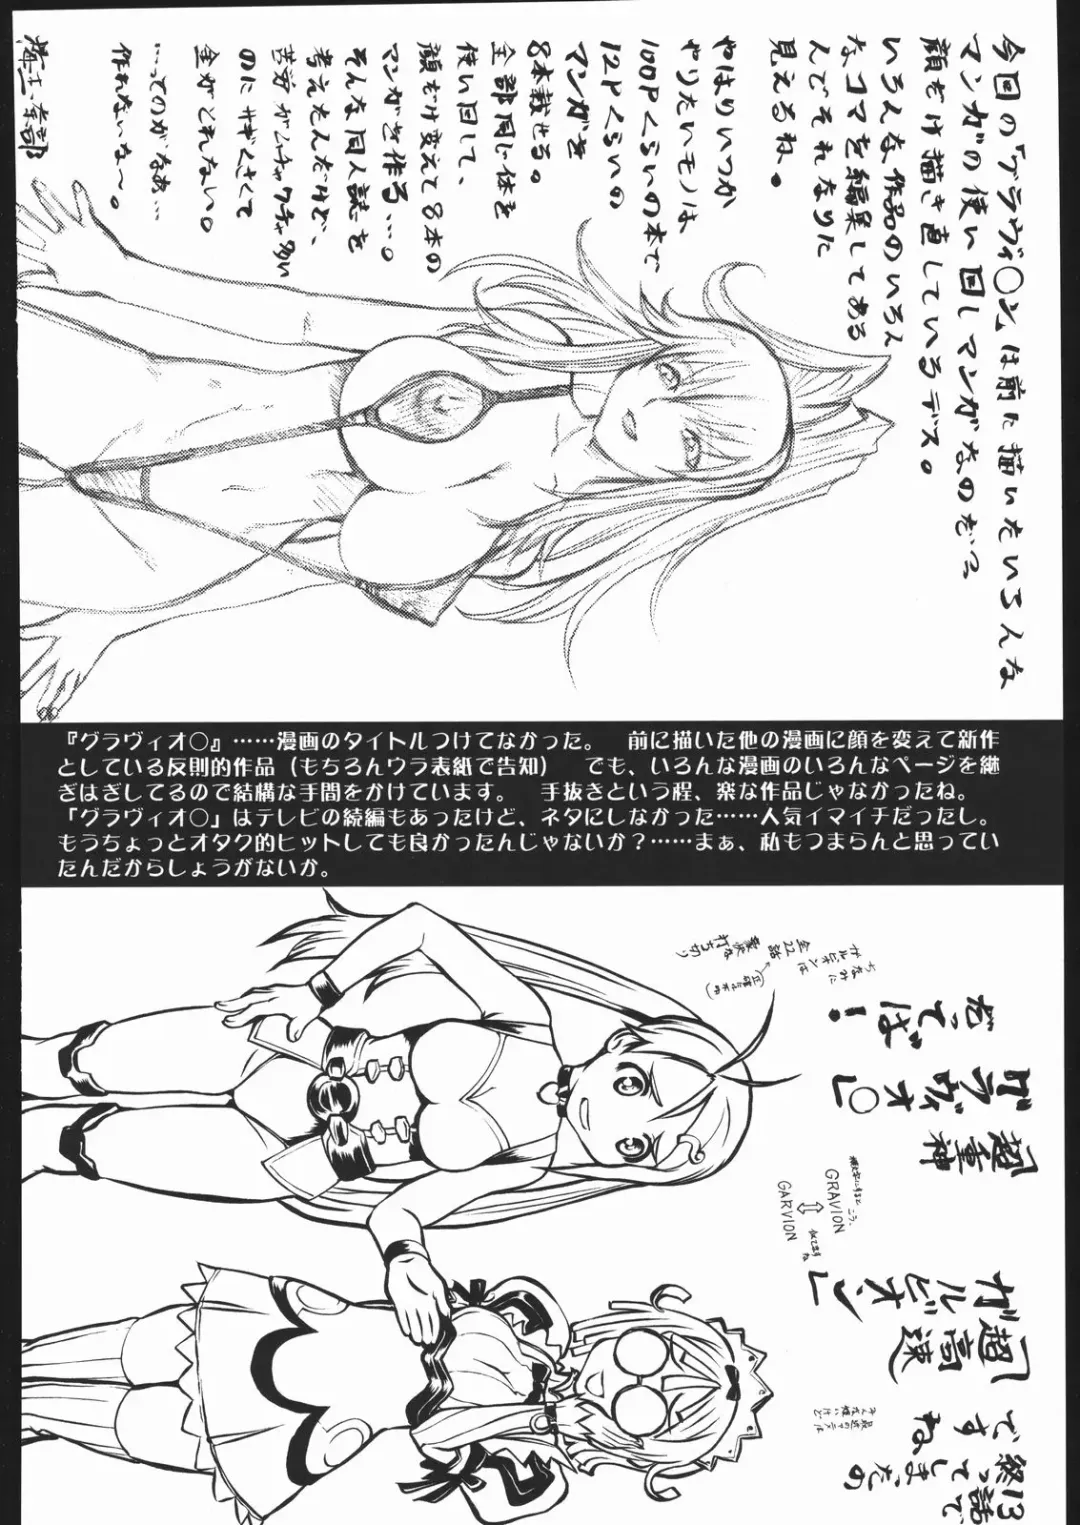 今回の「グラヴィ○ン」は前に描いたいろんな
マンガの使い回しマンガなのだっ
顔だけ描き直しているデス。
いろんな作品のいろん
なコマを編集してある
んでそれなりに
見えるね。
やはりいつか
やりたいモノは
100Pくらいの本で
12Pくらいの
マンガを
8本載せる。
全部同じ体を
使い回して、
顔だけ変えて8本の
マンガを作る…。
そんな同人誌を
考えたんだけど、
苦労がムチャクチャ多い
のにサギくさくて
金がとれない。
…ってのがなぁ…
作れないな〜。
『グラヴィオ○』……漫画のタイトルつけてなかった。　前に描いた他の漫画に顔を変えて新作
としている反則的作品（もちろんウラ表紙で告知）　でも、いろんな漫画のいろんなページを継
ぎはぎしてるので結構な手間をかけています。　手抜きという程、楽な作品じゃなかったね。
『グラヴィオ○』はテレビの続編もあったけど、ネタにしなかった……人気イマイチだったし。
もうちょっとオタク的ヒットしても良かったんじゃないか？……まぁ、私もつまらんと思ってい
たんだからしょうがないか。
だってば！
「超重神
グラヴィオ○」
ちなみに
ガルビオンは
全22話
打ち切り
GRAVION
⇕
GARVION
「超高速
ガルビオン」
ですね
13話で
終って
しまったの